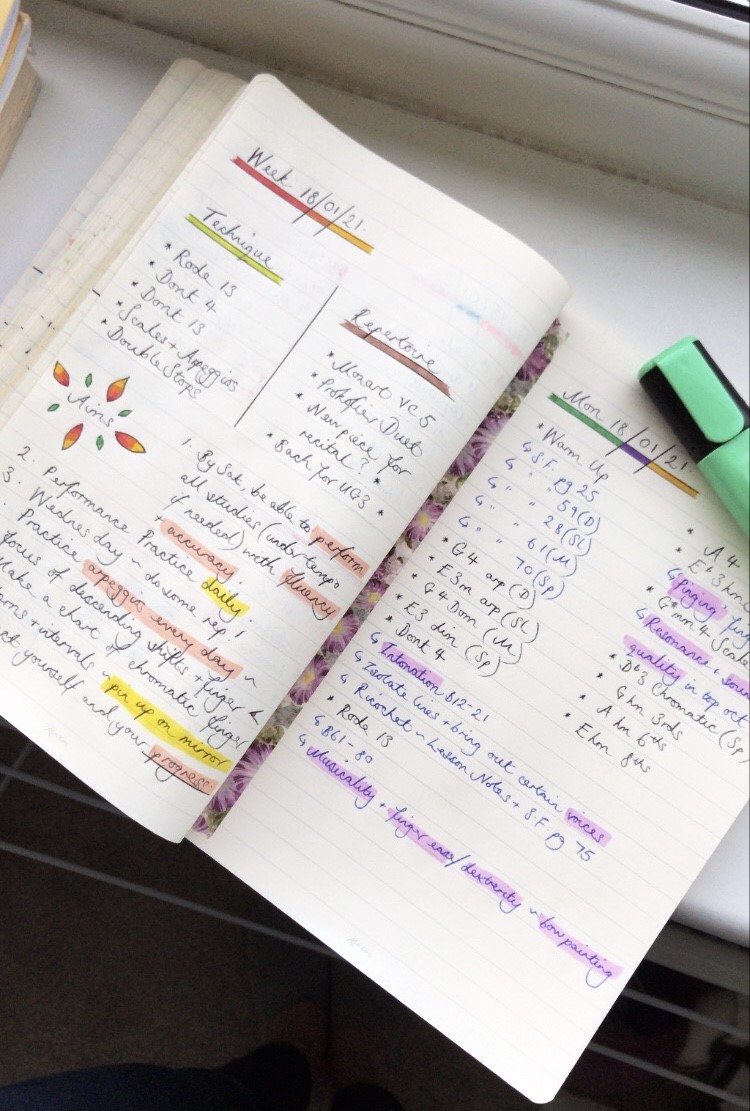 Week 18/01/21.
Technique
* Rode 13
* Dont 4
* Dont 13
* Scales + Arpeggios
* Double Stops
Repertoire
* Mozart vc 5
* Prokofiev Duet
* New piece for
recital? *
* Bach for UG3 *
Aims
1. By Sat, be able to perform
all studies (under tempo
if needed) with fluency
accuracy.
2. Performance Practice daily
3. Wednesday ~ do some rep!
Practice arpeggios every day ~
focus of descending shifts + finger
Make a chart of chromatic finger
+ intervals ~ pin up on mirror
yourself and your progress.
Mon 18/01/21.
* Warm Up
↳ S.F. pg 25
↳ " " 59 (D)
↳ " " 28 (SL)
↳ " " 61 (M)
↳ " " 70 (Sp)
* G4 arp (D)
* E3m arp (SL)
* G4 Dom (M)
* E3 dim (Sp)
* Dont 4
↳ Intonation b12-21
↳ Isolate lines + bring out certain voices
↳ Ricochet ~ Lesson Notes + S.F pg 75
* Rode 13
↳ B61-80
↳ Musicality + finger ease/dexterity ~ bow painting
* A 4
* Eb3 hm
↳ "Pinging"
* G#mn 4 Scale
↳ Resonance +
quality in top oct
* Db3 Chromatic (Sp)
* Ghm 3rds
* Ahm 6ths
* Ehm 8ths